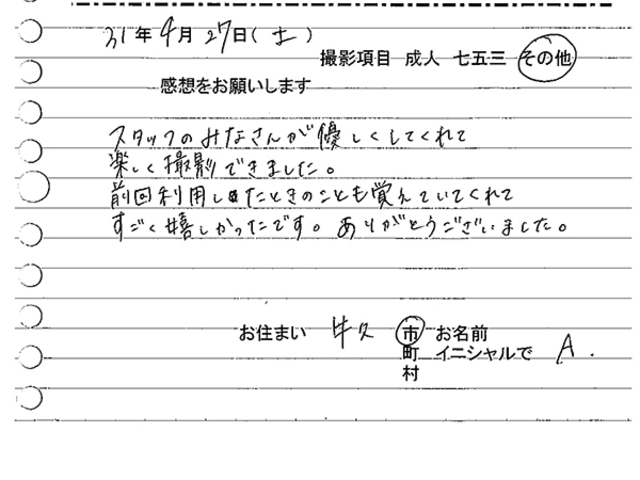 31年4月27日(土)
撮影項目 成人 七五三 その他
感想をお願いします
スタッフのみなさんが優しくしてくれて
楽しく撮影できました。
前回利用したときのことも覚えていてくれて
すごく嬉しかったです。ありがとうございました。
お住まい 牛久 市 お名前
町 イニシャルで A.
村